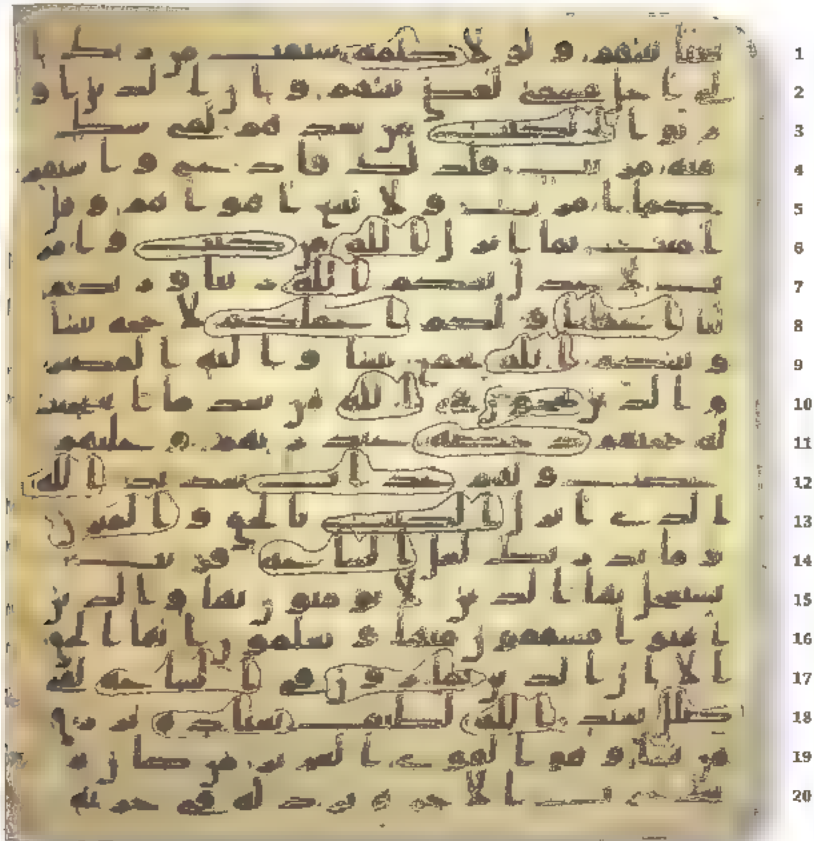 بغيا بينهم و لو لا كلمه سبقت من ربك ا
لى اجل مسمى لقضى بينهم و ان الذين او
رثوا الكتب من بعدهم لفى شك
منه مريب فلذلك فادع و استقم
كما امرت و لا تتبع اهواهم و قل
امنت بما انزل الله من كتب و امر
ت لاعدل بينكم الله ربنا و ربكم
لنا اعملنا و لكم اعملكم لا حجه بيننا
و بينكم الله يجمع بيننا و اليه المصير
و الذين يحجون فى الله من بعد ما استجيب
له حجتهم دحضه عند ربهم و عليهم
غضب و لهم عذاب شديد الله
الذى انزل الكتب بالحق و الميزن
و ما يدريك لعل الساعه قريب
يستعجل بها الذين لا يومنون بها و الذين
امنوا مشفقون منها و يعلمون انها الحق
الا ان الذين يمارون فى الساعه لفى
ضلل بعيد الله لطيف بعباده يرزق
من يشا و هو القوى العزيز من كان ير
يد حرث الاخره نزد له فى حرثه
1
2
3
4
5
6
7
8
9
10
11
12
13
14
15
16
17
18
19
20